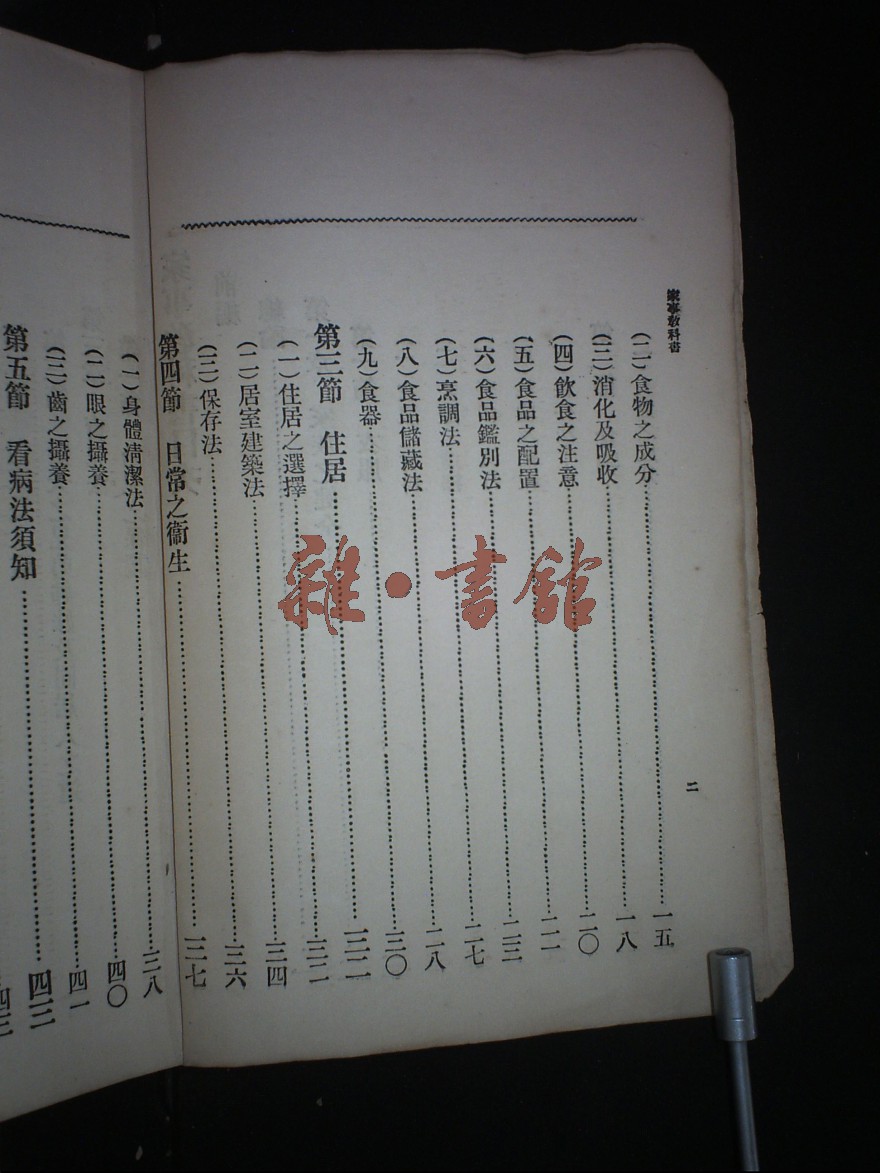 家事教科書
二
(二)食物之成分…………一五
(三)消化及吸收…………一八
(四)飲食之注意…………二〇
(五)食品之配置…………二一
(六)食品鑑別法…………二三
(七)烹調法…………二七
(八)食品儲藏法…………二八
(九)食器…………三〇
第三節 住居…………三二
(一)住居之選擇…………三二
(二)居室建築法…………三四
(三)保存法…………三六
第四節 日常之衞生…………三七
(一)身體淸潔法…………三八
(二)眼之攝養…………四〇
(三)齒之攝養…………四一
第五節 看病法須知…………四三
四三
雜·書館